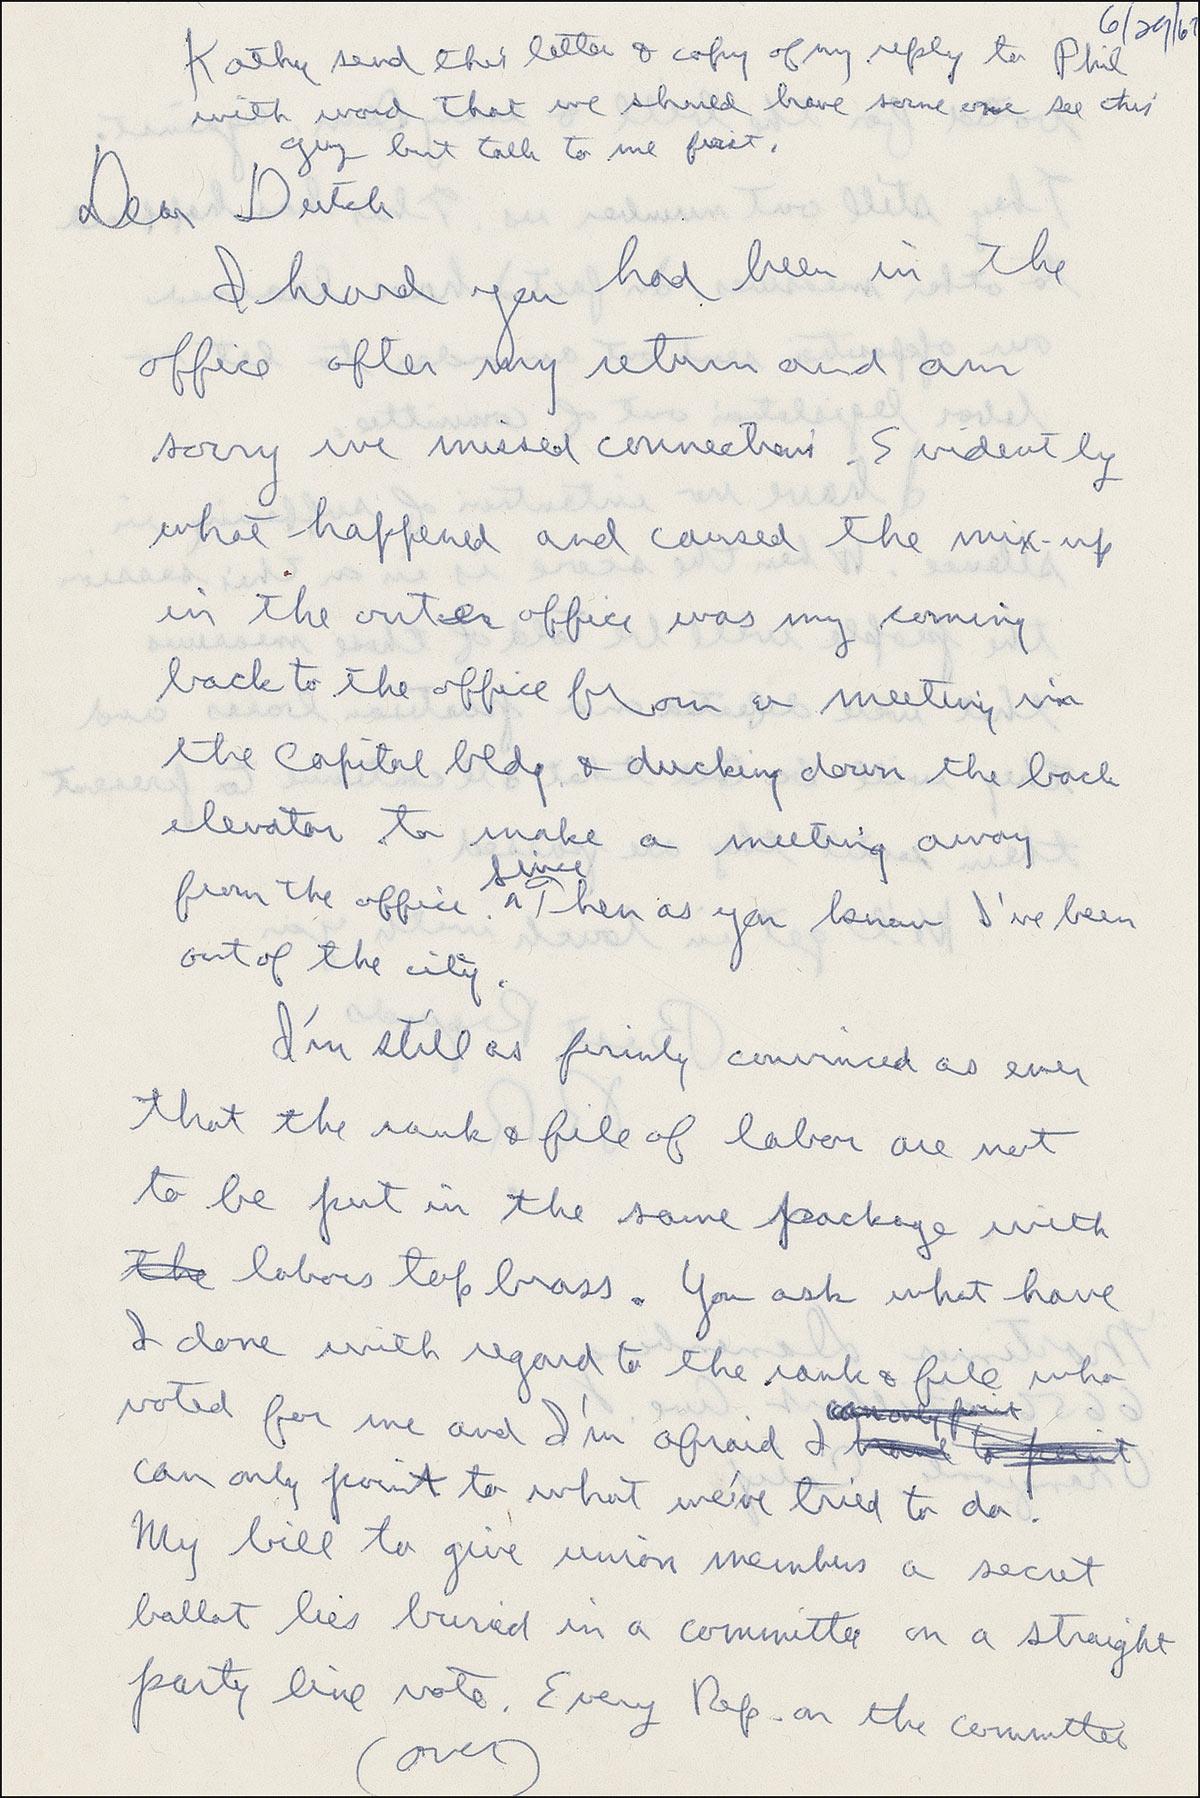 6/29/67
Kathy send this letter & copy of my reply to Phil
with word that we should have some one see this
guy but talk to me first.
Dear Dutch
I heard you had been in the
office after my return and am
sorry we missed connections. Evidently
what happened and caused the mix-up
in the outer office was my coming
back to the office from a meeting in
the Capitol bldg & ducking down the back
elevator to make a meeting away
from the office. ^since Then as you know I've been
out of the city.
I'm still as firmly convinced as ever
that the rank & file of labor are not
to be put in the same package with
the labors top brass. You ask what have
I done with regard to the rank & file who
can only point
voted for me and I'm afraid I have to point
can only point to what we've tried to do.
My bill to give union members a secret
ballot lies buried in a committee on a straight
party line vote. Every Rep. on the committee
(over)